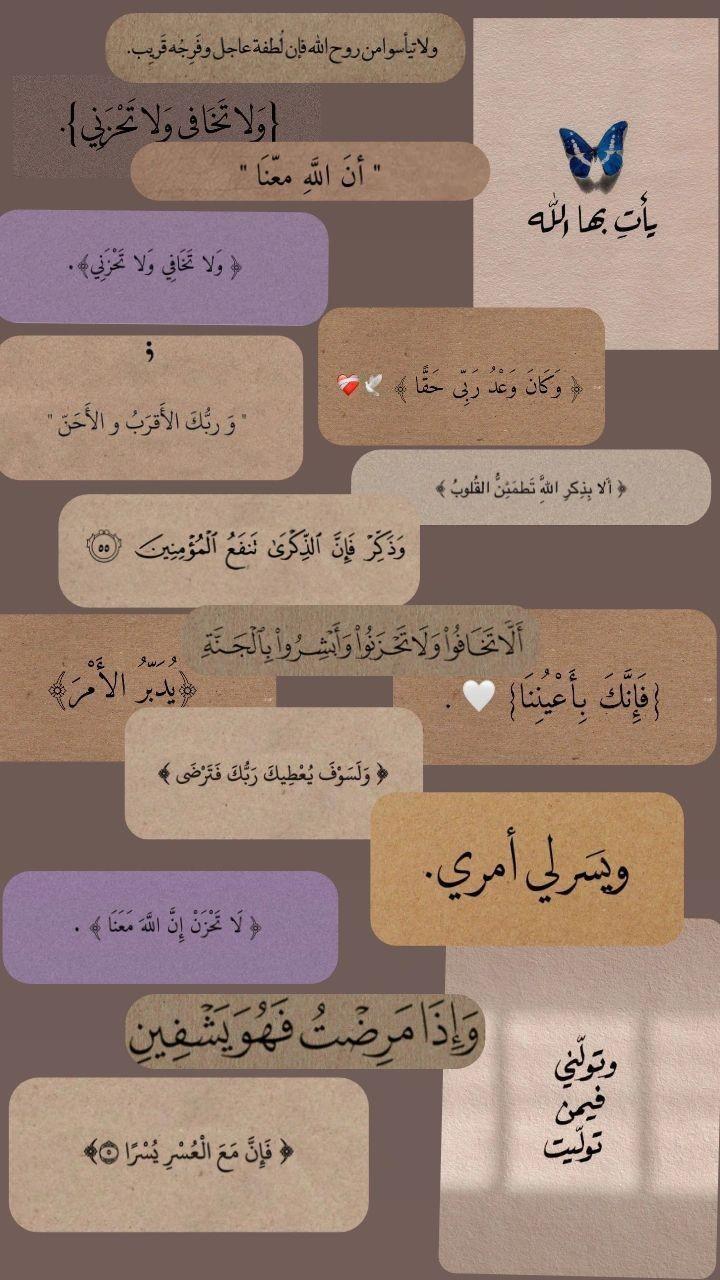 ولا تيأسوا من روح الله فإن لُطفة عاجل وفَرِجُه قَريب.
{وَلا تَخَافى وَلا تَحْزَنِي}.
" أنَ اللَّهِ معّنَا "
يأتِ بها الله
﴿ وَلا تَخَافِي وَلا تَحْزَنِي﴾.
﴿ وَكَانَ وَعْدُ رَبِّى حَقًّا ﴾ 🕊️❤️‍🩹
؛
" وَ ربُّكَ الأَقرَبُ و الأَحَنّ "
﴿ ألا بِذِكرِ اللَّهِ تَطمَئِنُّ القُلوبُ ﴾
وَذَكِّرْ فَإِنَّ ٱلذِّكْرَىٰ تَنفَعُ ٱلْمُؤْمِنِينَ ٥٥
أَلَّا تَخَافُواْ وَلَا تَحْزَنُواْ وَأَبْشِرُواْ بِٱلْجَنَّةِ
﴿يُدَبِّرُ الأَمْرَ﴾
{فَإِنَّكَ بِأَعْيُنِنَا} 🤍 .
﴿ وَلَسَوْفَ يُعْطِيكَ رَبُّكَ فَتَرْضَى ﴾
ويَسَرلي أمري.
﴿ لَا تَحْزَنْ إِنَّ اللَّهَ مَعَنَا ﴾ .
وَإِذَا مَرِضْتُ فَهُوَ يَشْفِينِ
وتولّني
فيمن
تولّيت
﴿ فَإِنَّ مَعَ الْعُسْرِ يُسْرًا ٥﴾